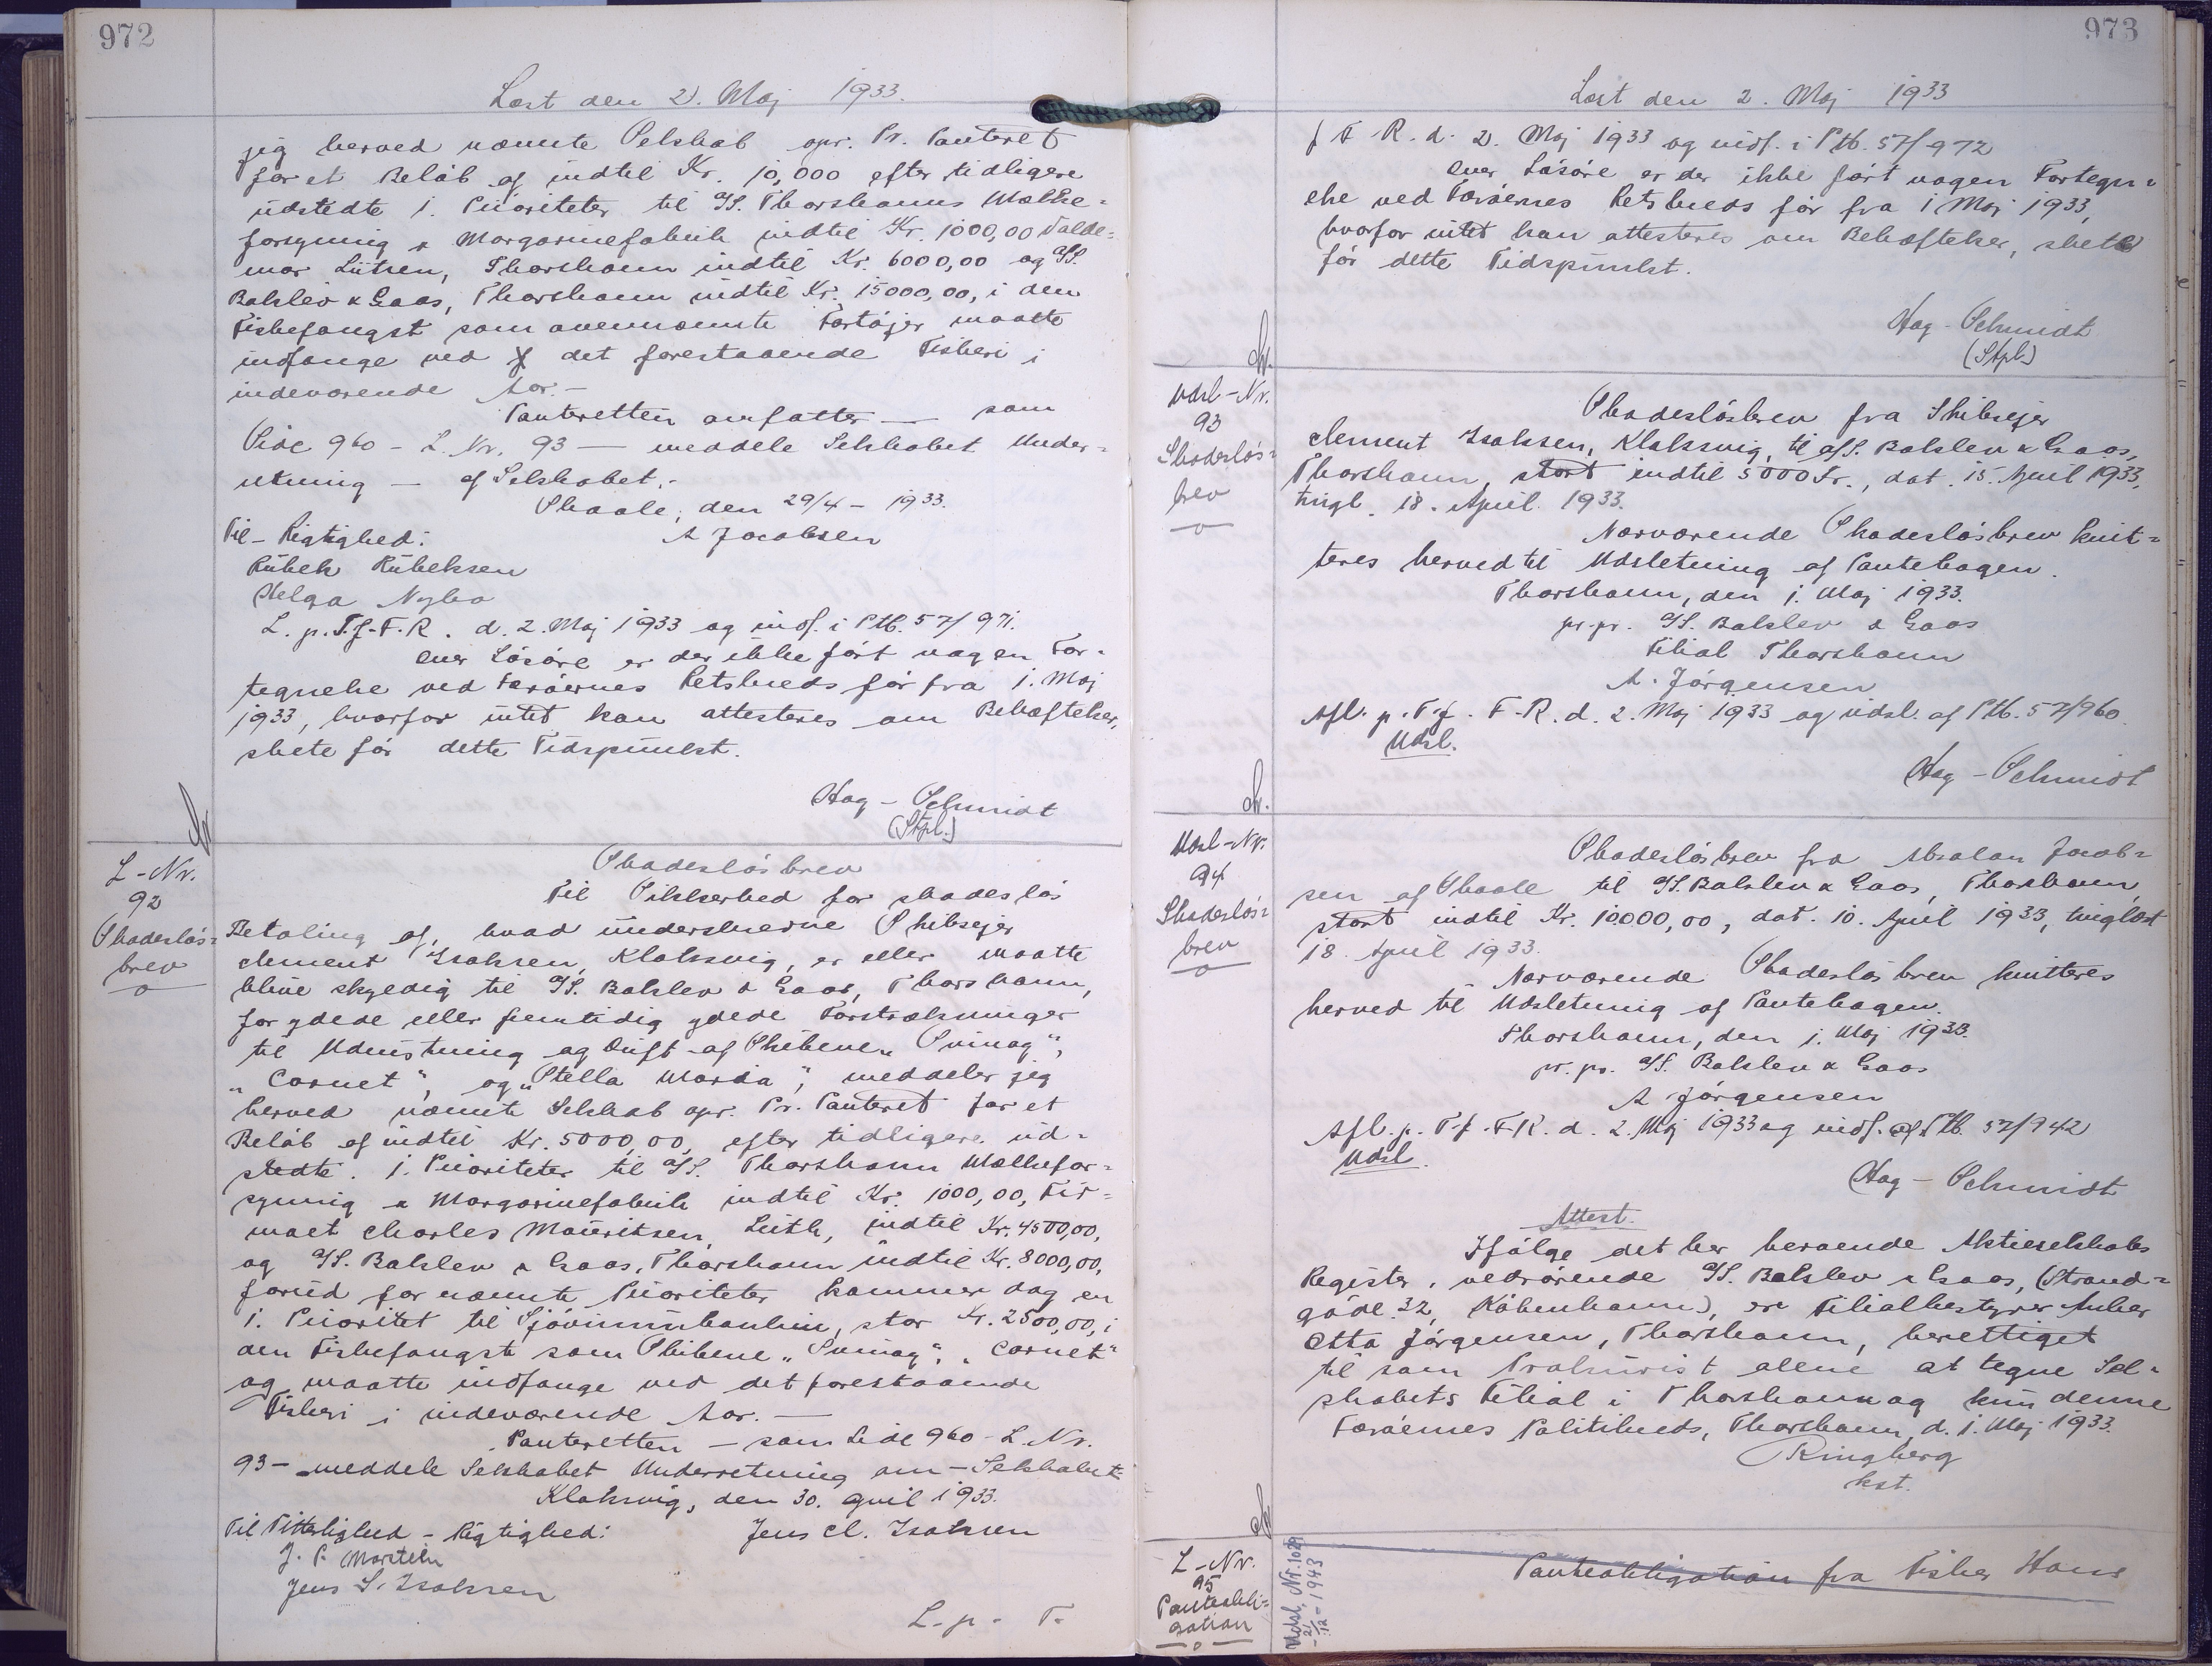 972
Læst den 2. Maj 1933.
jeg herved nævnte Selskab opr. Pr. Panteret
for et Beløb af indtil Kr. 10,000 efter tidligere
udstedte 1. Prioriteter til A/S. Thorshavns Mælke-
forsyning & Margarinefabrik indtil Kr. 1000,00 Valde-
mar Lützen, Thorshavn indtil Kr. 6000,00 og A/S.
Balslev & Gaas, Thorshavn indtil Kr. 15000,00, i den
Fiskefangst som ovennævnte Fartøjer maatte
indfange ved det forestaaende Fiskeri i
indeværende Aar.-
Panteretten omfatter — som
Side 960 - L. Nr. 93 — meddele Selskabet Under-
retning — af Selskabet.-
Skaale, den 29/4 - 1933.
Til - Rigtighed: A Jacobsen
Rübek Rübeksen
Helga Nybo
L. p. T. f. F. R. d. 2. Maj 1933 og indf. i Ptb. 57/971.
Over Løsøre er der ikke ført nogen For-
tegnelse ved Færøernes Retskreds før fra 1. Maj
1933, hvorfor intet kan attesteres om Behæftelser,
skete før dette Tidspunkt.
Hag - Schmidt
(Stpl.)
L - Nr.
92
Skadesløs-
brev
Skadesløsbrev
Til Sikkerhed for skadesløs
Betaling af, hvad underskrevne Skibsejer
Clement Isaksen, Klaksvig, er eller maatte
blive skyldig til A/S. Balslev & Gaas, Thorshavn,
for ydede eller fremtidig ydede Forstrækninger
til Udrustning og Drift af Skibene „Svinoy“,
„Cornet“, og „Stella Maria“, meddeler jeg
herved nævnte Selskab opr. Pr. Panteret for et
Beløb af indtil Kr. 5000,00, efter tidligere ud-
stedte 1. Prioriteter til A/S. Thorshavn Mælkefor-
syning & Margarinefabrik indtil Kr. 1000,00, Fir-
maet Charles Mauritzen, Leith, indtil Kr. 4500,00,
og A/S. Balslev & Gaas, Thorshavn indtil Kr. 8000,00,
forud for nævnte Prioriteter kommer dog en
1. Prioritet til Sjóvinnubankin, stor Kr. 2500,00, i
den Fiskefangst som Skibene „Svinoy“, „Cornet“
og maatte indfange ved det forestaaende
Fiskeri i indeværende Aar. —
Panteretten — som Side 960 - L. Nr.
93 - meddele Selskabet Underretning om - Selskabet
Klaksvig, den 30. April 1933.
Til Vitterlighed - Rigtighed: Jens Cl. Isaksen
J. P. Morstein
Jens S. Isaksen
L. p. T.
973
Læst den 2. Maj 1933
f F. R. d. 2. Maj 1933 og indf. i Ptb. 57/972
Over Løsøre er der ikke ført nogen Fortegn-
else ved Færøernes Retskreds før fra 1 Maj 1933,
hvorfor intet kan attesteres om Behæftelser, skete
før dette Tidspunkt.
Hag - Schmidt
(Stpl.)
Udsl - Nr.
93
Skadesløs-
brev
Skadesløsbrev fra Skibsejer
Clement Isaksen, Klaksvig, til A/S. Balslev & Gaas,
Thorshavn, stort indtil 5000 Kr., dat. 15. April 1933,
tingl. 18. April 1933.
Nærværende Skadesløsbrev kvit-
teres herved til Udsletning af Pantebogen.
Thorshavn, den 1. Maj 1933.
pr. pr. A/S. Balslev & Gaas
Filial Thorshavn
A. Jørgensen
Afl. p. T. f. F. R. d. 2. Maj 1933 og udsl. af Ptb. 57/960.
Udsl.
Hag - Schmidt
Udsl - Nr.
94
Skadesløs-
brev
Skadesløsbrev fra Absalon Jacob-
sen af Skaale til A/S. Balslev & Gaas, Thorshavn,
stort indtil Kr. 10000,00, dat. 10. April 1933, tinglæst
18. April 1933.
Nærværende Skadesløsbrev kvitteres
herved til Udsletning af Pantebogen.
Thorshavn, den 1. Maj 1933.
pr. pr. A/S. Balslev & Gaas
A Jørgensen
Afl. p. T. f. F. R. d. 2. Maj 1933 og indf. af Ptb. 57/942
Udsl.
Hag - Schmidt
Attest.
Ifølge det her beroende Aktieselskabs
Register, vedrørende A/S. Balslev & Gaas, (Strand-
gade 32, København), er Filialbestyrer Anker
Otto Jørgensen, Thorshavn, berettiget
til som Prokurist alene at tegne Sel-
skabets Filial i Thorshavn og kun denne
Færøernes Politikreds, Thorshavn, d. 1. Maj 1933.
Ringberg
kst.
L - Nr.
95
Panteobli-
gation
Udsl. Nr. 1029
21/12 - 1943
Panteobligation fra Fisker Hans